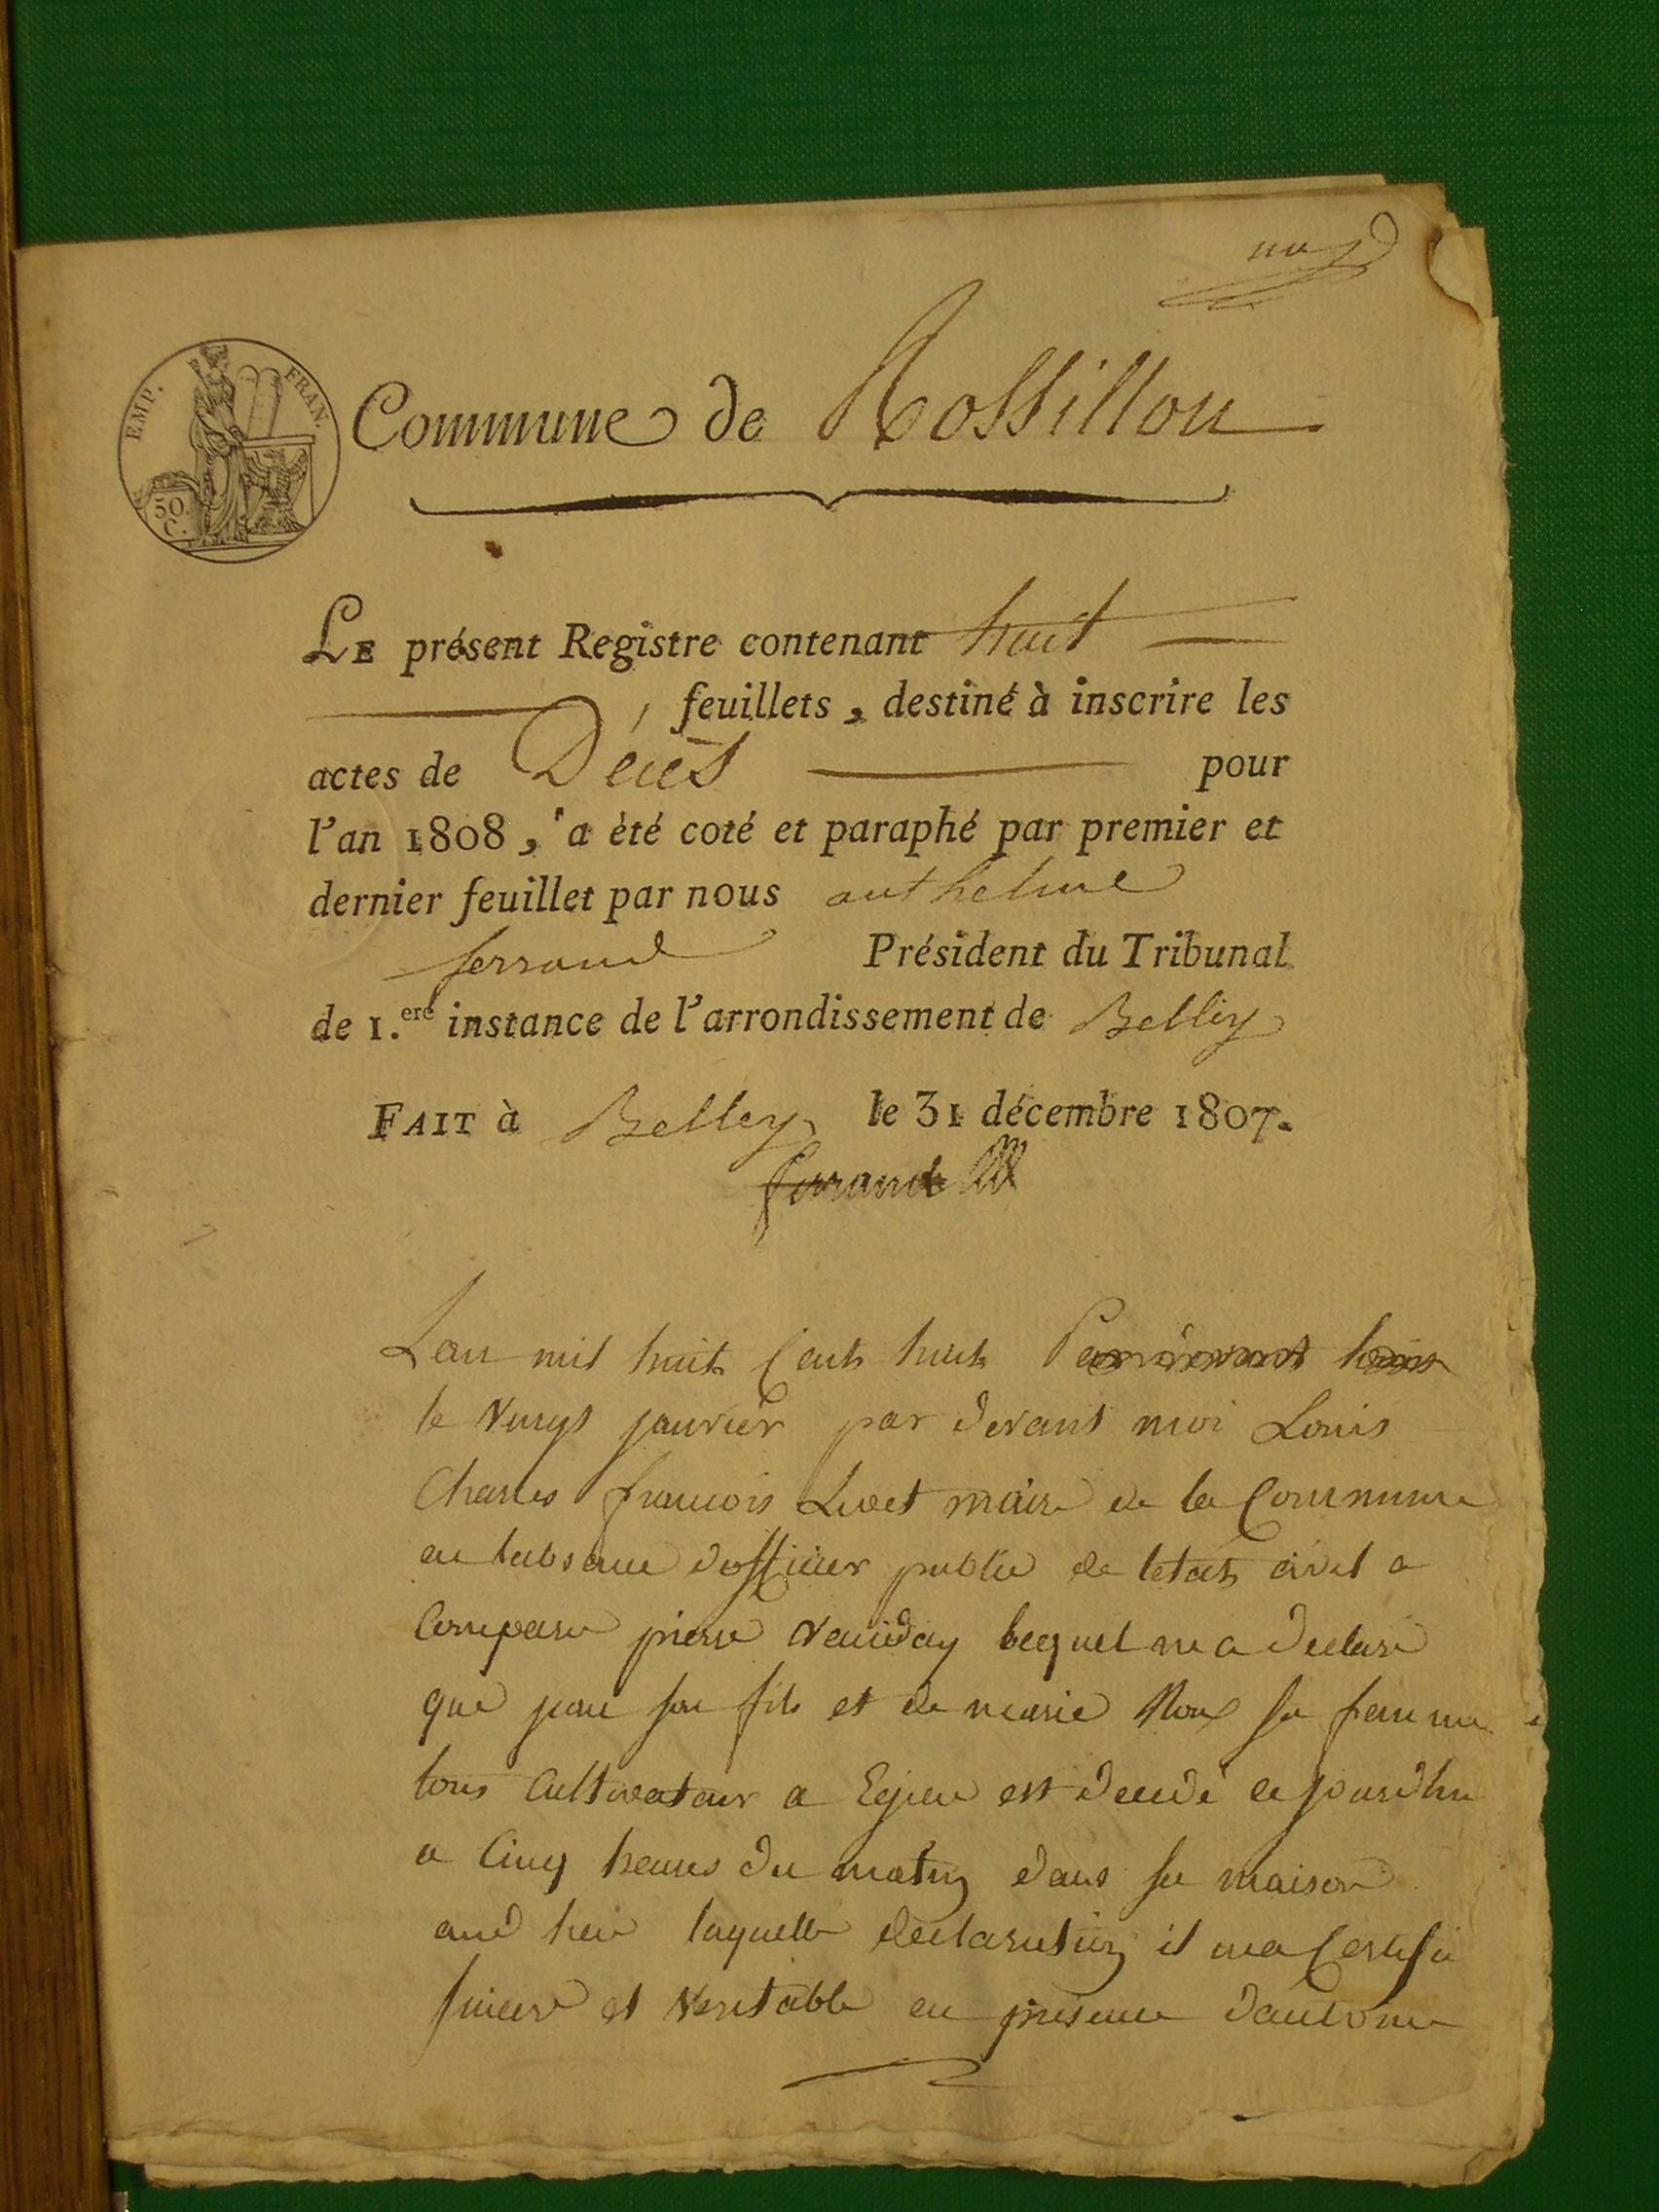 EMP. FRAN.
50.
C.
Commune de Rossillon
LE présent Registre contenant huit
feuillets, destiné à inscrire les
actes de Décès pour
l'an 1808, a été coté et paraphé par premier et
dernier feuillet par nous anthelme
ferrand Président du Tribunal
de 1.ere instance de l'arrondissement de Belley
FAIT à Belley le 31 décembre 1807.
ferrand
Lan mil huit Cents huit
le vingt janvier par devant moi Louis
Charles francois Livet maire de la Commune
en labsance dofficier public de letat civil a
Comparu pierre lequel ma declaré
que son fils et de marie Roux sa femme
tous Cultivateur a Egieu est decedé cejourdhui
a Cinq heures du matin dans sa maison
aud lieu laquelle declaration il ma Certifié
sincere et veritable en presence dantoine